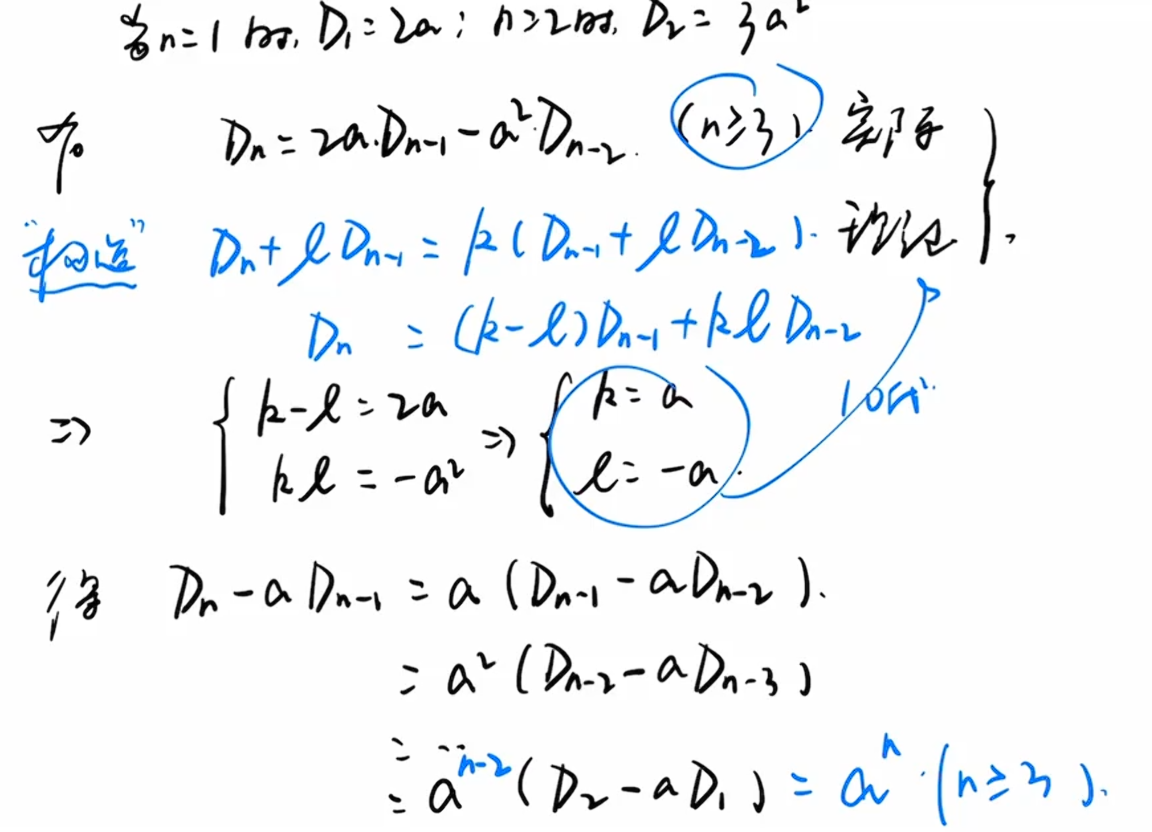 当n=1时, D₁=2a; n=2时, D₂=3a²
Dₙ=2a·Dₙ₋₁-a²·Dₙ₋₂. (n≥3). 实际
"构造" Dₙ+lDₙ₋₁=k(Dₙ₋₁+lDₙ₋₂). 理论
Dₙ=(k-l)Dₙ₋₁+klDₙ₋₂
⇒ { k-l=2a ⇒ { k=a
kl=-a² l=-a.
得 Dₙ-aDₙ₋₁=a(Dₙ₋₁-aDₙ₋₂).
=a²(Dₙ₋₂-aDₙ₋₃)
=...
=aⁿ⁻²(D₂-aD₁)=aⁿ·(n≥3).